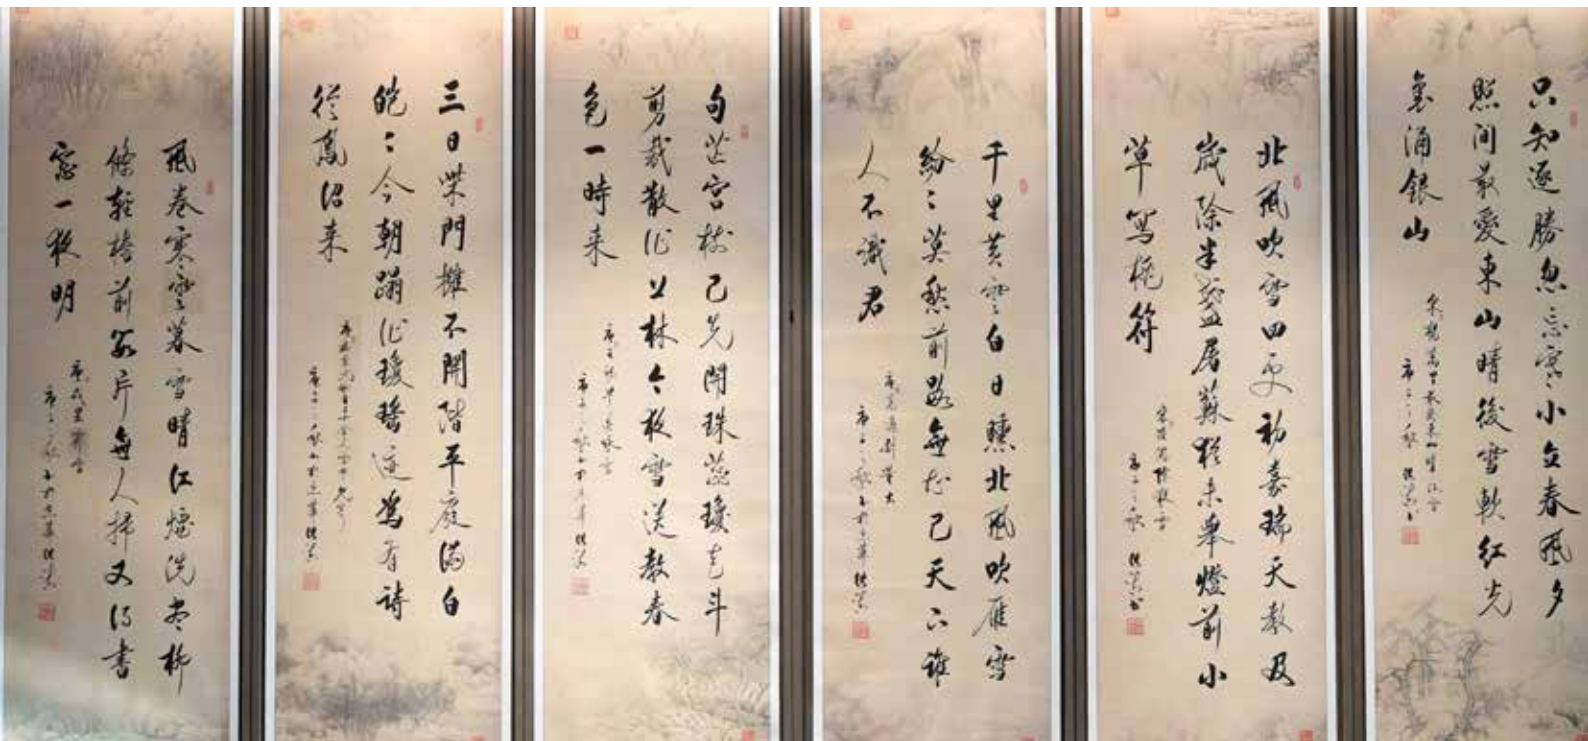 只知逐勝忽忘寒小立春風夕
照間最愛東山晴後雪軟紅光
裏涌銀山
宋楊萬里最愛東山晴後雪
北風吹雪四更初嘉瑞天教及
歲除半盞屠蘇猶未舉燈前小
草寫桃符
宋陸游除夜雪
千里黃雲白日曛北風吹雁雪
紛々莫愁前路無知己天下誰
人不識君
唐高適別董大
句芒宮樹已先開珠蕊瓊花斗
剪裁散作上林今夜雪送教春
色一時来
三日柴門擁不開階平庭滿白
皚々今朝蹋作瓊瑤迹為有詩
從鳳沼来
風卷寒雲暮雪晴江煙洗盡柳
條輕檐前數片無人掃又得書
窓一夜明
唐戎昱霽雪